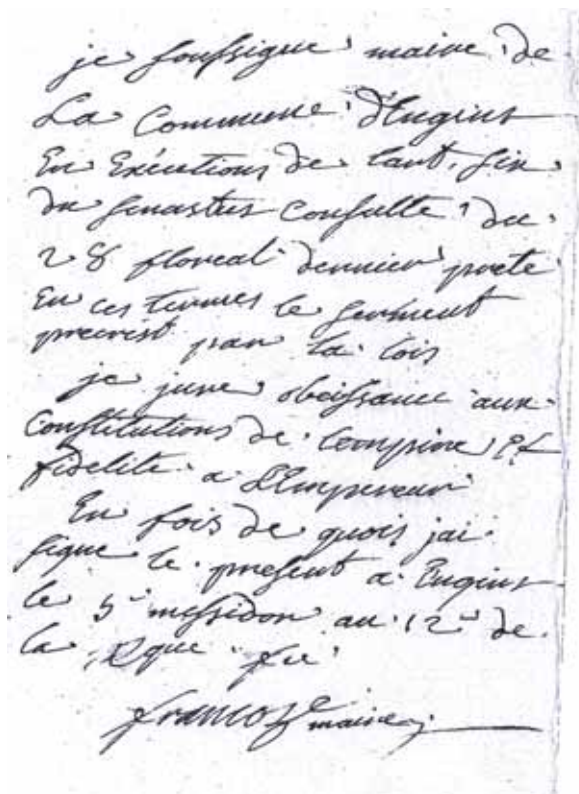 je soussigne maire de
La Commune d'Engins
En Exécutions de lart. six
du senastus Consulte du
28 floreal dernier prete
En ces termes le serment
precrist par la lois
je jure obeissance aux
Constitutions de lempire, et
fidelite a L'Empereur
En fois de quois jai
signe le present a Engins
le 5e messidor an 12e de
la Rque fse
francoz maire